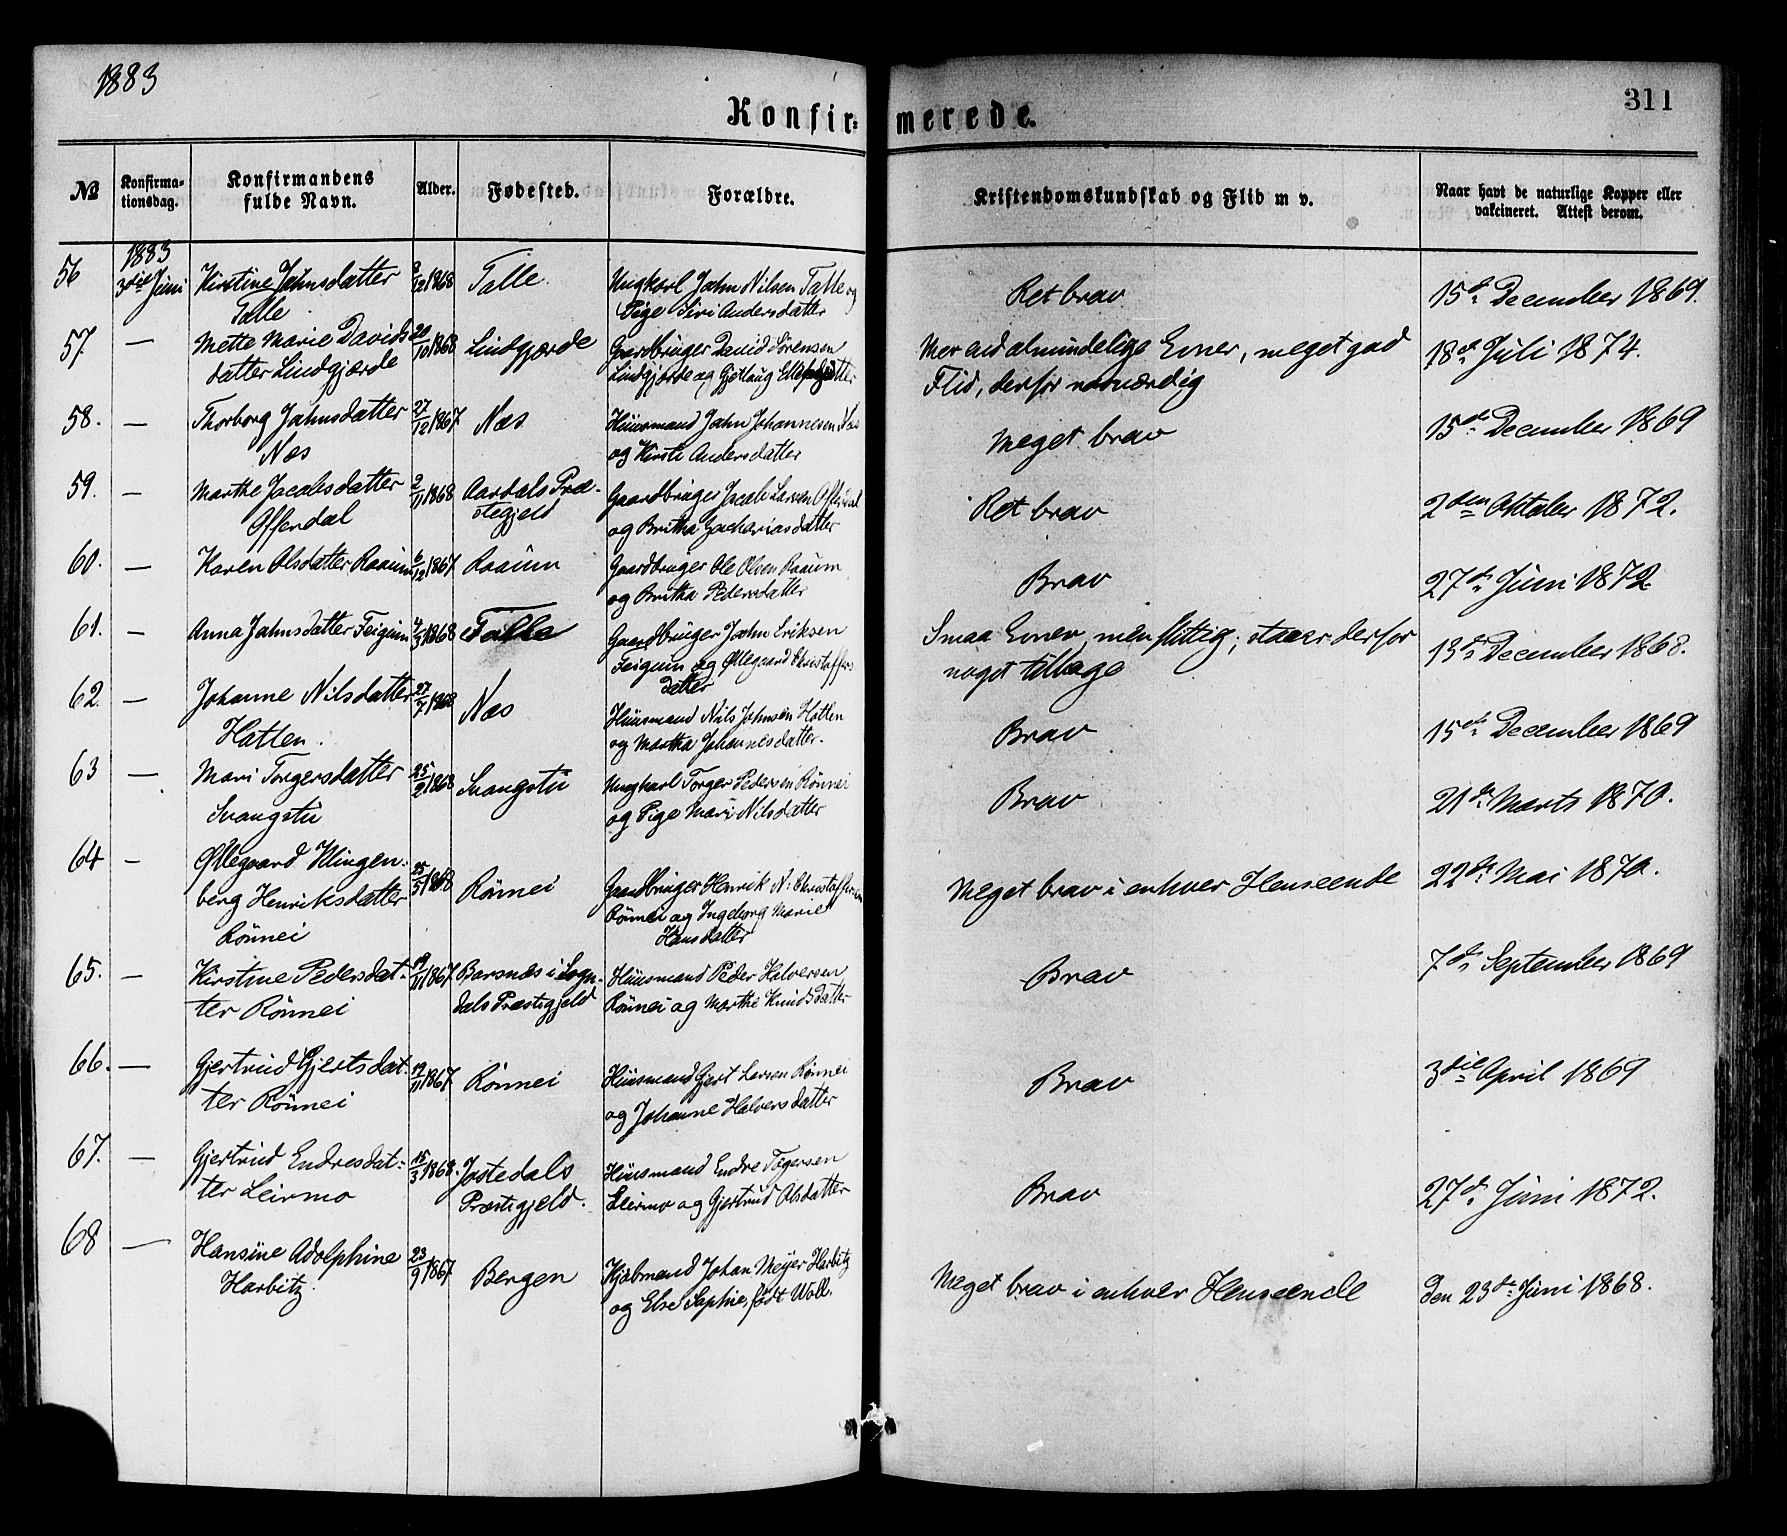 1883
311
Konfirmerede.
№ Konfirmationsdag. Konfirmandens fulde Navn. Alder. Fødested. Forældre. Kristendomskundskab og Flid m v. Naar havt de naturlige Kopper eller vakcineret. Attest derom.
1883
56 3die Juni Kirstine Jahnsdatter 8/12 1868 Talle. Ungkarl Jahn Nilsen Talle og Ret brav 15de December 1869.
Talle. Pige Siri Andersdatter
57. — Mette Marie Davids 20/10 1868 Lindgjærde Gaardbruger David Sørensen Mer end almindelige Evner, meget god 18de Juli 1874.
datter Lindgjærde Lindgjærde og Gjetlaug Flid, derfor
58. — Thorborg Jahnsdatter 27/12 1867 Næs Huusmand Jahn Johannesen Næs Meget brav 15de December 1869
Næs og Kirsti Andersdatter
59. — Marthe Jacobsdatter 2/11 1868 Aardals Præ- Gaardbruger Jacob Larsen Offerdal Ret brav 2den Oktober 1872.
Offerdal stegjeld og Britha Zachariasdatter
60. — Karen Olsdatter Raaum 6/12 1867 Raaum Gaardbruger Ole Olsen Raaum Brav 27de Juni 1872
og Britha Pedersdatter
61. — Anna Jahnsdatter Feigum 4/3 1868 Talle Gaardbruger Jahn Eriksen Smaa Evner, men flittig; staaer derfor 13de December 1868.
Feigum og Øllegaard Christoffers noget tilbage
datter
62. — Johanne Nilsdatter 27/7 1868 Næs Huusmand Nils Johnsen Hatlen Brav 15de December 1869
Hatlen. og Martha Johannesdatter.
63 — Mari Torgersdatter 25/2 1868 Svangstu Ungkarl Torger Pedersen Rönnei Brav 21de Marts 1870.
Svangstu og Pige Mari Nilsdatter
64 — Øllegaard Klingen- 25/5 1868 Rönnei Gaardbruger Henrik N. Christoffersen Meget brav i enhver Henseende 22de Mai 1870.
berg Henriksdatter Rönnei og Ingeborg Marie
Rönnei Hansdatter
65. — Kirstine Pedersdat- 19/11 1867 Barsnæs i Sogn- Huusmand Peder Halversen Brav 7de September 1869
ter Rönnei dals Præstegjeld Rönnei og Marthe Knudsdatter
66. — Gjertrud Gjertsdat- 19/11 1867. Rönnei Huusmand Gjert Larsen Rönnei Brav 3die April 1869
ter Rönnei og Johanne Halversdatter
67. — Gjertrud Endresdat- 15/3 1868. Jostedals Huusmand Endre Tøgersen Brav 27de Juni 1872.
ter Leirmo Præstegjeld. Leirmo og Gjertrud Olsdatter
68 — Hansine Adolphine 23/9 1867. Bergen Kjøbmand Johan Meyer Harbitz Meget brav i enhver Henseende den 23de Juni 1868.
Harbitz. og Else Sophie, født Woll.